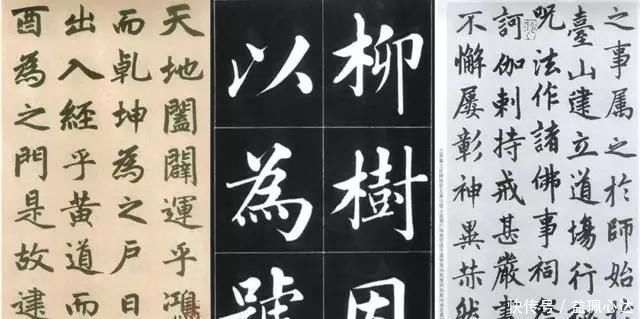 天地闔闢運乎鴻
而乹坤為之戶日
出入經乎黃道而
酉為之門是故建
柳樹因
以為號
之事屬之於師始
臺山建立道場行
呪法作諸佛事祠
訶伽剌持戒甚嚴
不懈屢彰神異赫然
快传号／益珮心达